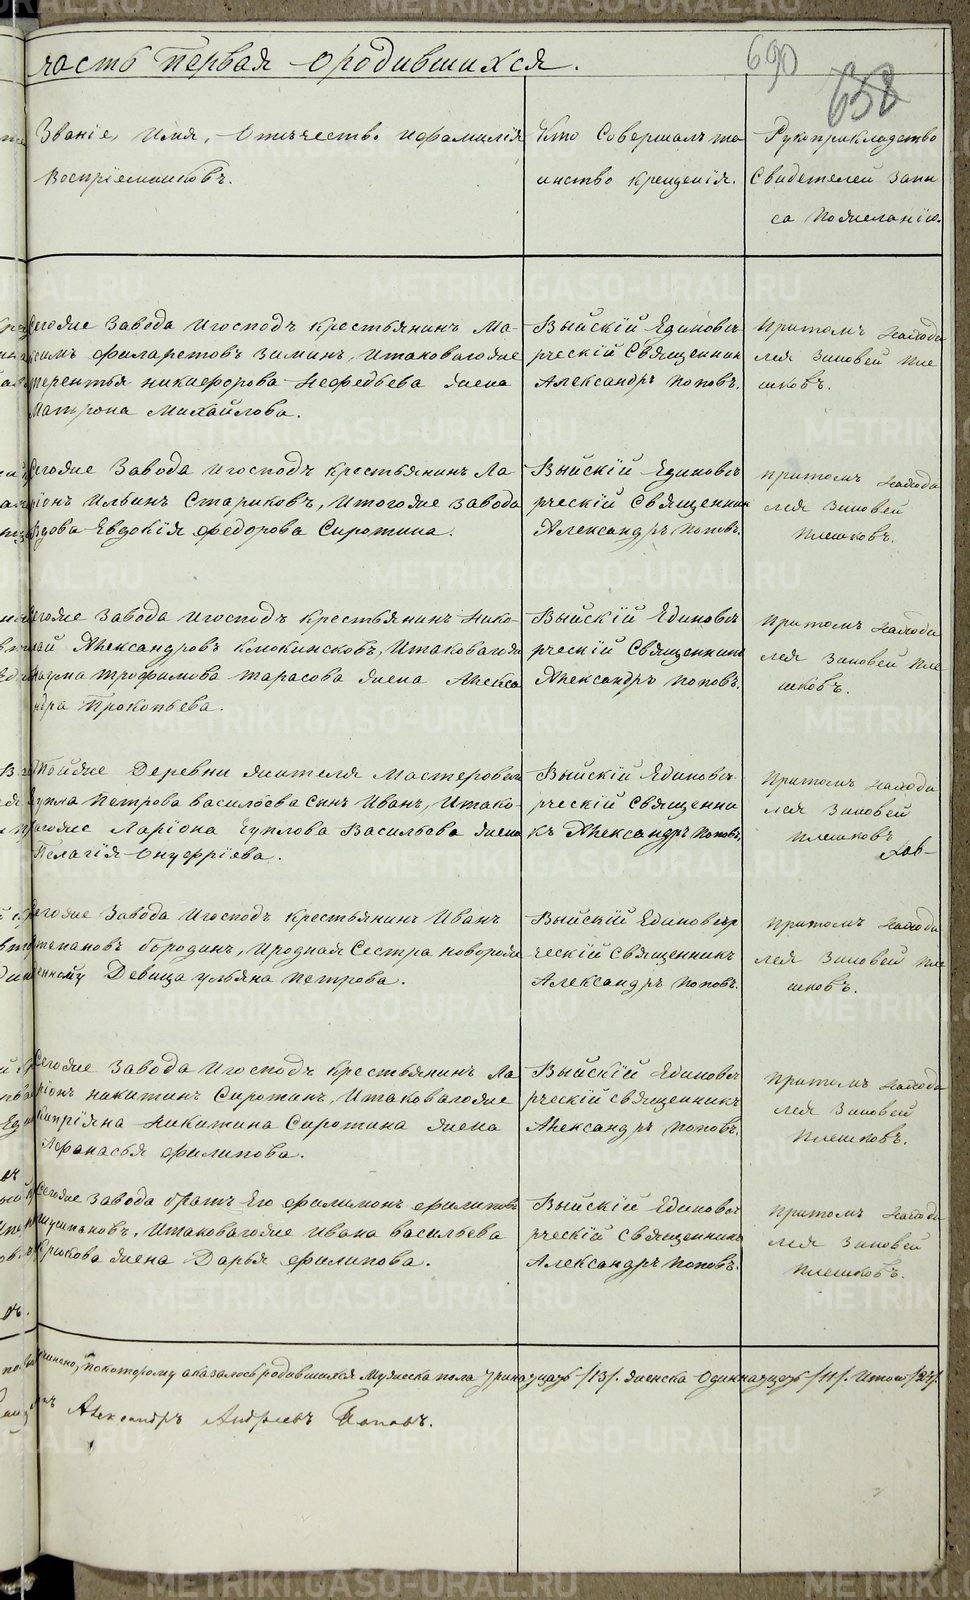 часть Первая о родившихся.
690
638
Званіе, имя, Отечество и фамилія
Воспріемниковъ.
Кто Совершалъ та
инство крещенія.
Рукоприкладство
Свидетелей запи
си по желанію.
Сегоже Завода Игосподъ крестьянинъ Ма-
ксимъ филаретовъ Зиминъ, Итаковагоже
терентья никифорова Нефедьева жена
Матрона Михайлова.
Выйскій Единовѣ
рческій Священник
Александръ Поповъ.
Притомъ находи
лся Зиновей Пле
шковъ.
Сегоже Завода Игосподъ крестьянинъ Ла-
ріонъ Ильинъ Стариковъ, Итогоже завода
Вдова Евдокія федорова Сиротина.
Выйскій Единовѣ
рческій Священник
Александръ Поповъ.
Притомъ находи
лся Зиновей
Плешковъ.
Сегоже Завода Игосподъ крестьянинъ Нико-
лай Александровъ Клюкинсковъ, Итаковагоже
Наума трофимова тарасова жена Алекса
ндра Прокопьева.
Выйскій Единовѣ
рческій Священникъ
Александръ Поповъ.
Притомъ находи
лся Зиновей Пле
шковъ.
Тойже Деревни жителя Мастероваго
Еупла Петрова Васильева Сынъ Иванъ, Итако-
вагоже Ларіона Еуплова Васильева жена
Пелагія Онуфріева.
Выйскій Единовѣ-
рческій Священни
къ Александръ Поповъ.
Притомъ находи
лся Зиновей
Плешковъ
Сегоже Завода Игосподъ крестьянинъ Иванъ
Степановъ Бородинъ, Иродная Сестра новорожд
енному Девица Ульяна Петрова.
Выйскій Единовѣр
ческій Священникъ
Александръ Поповъ.
Притомъ находи
лся Зиновей Пле
шковъ.
Сегоже Завода Игосподъ Крестьянинъ Ла
ріонъ никитинъ Сиротинъ, Итаковагоже
Кипріяна Никитина Сиротина жена
Афанасья филипова.
Выйскій Единовѣ
рческій священникъ
Александръ Поповъ.
Притомъ находи
лся Зиновей
Плешковъ.
Сегоже Завода братъ Его филимонъ филипов
Шушпановъ, Итаковагоже Ивана Васильева
Крюкова жена Дарья филипова.
Выйскій Единовѣ
рческій Священникъ
Александръ Поповъ.
Притомъ находи
лся Зиновей
Плешковъ.
по которому оказалось родившихся Мужеска пола тринадцать /13/. женска Одиннадцать /11/. Итого /24/.
Александръ Андреевъ Поповъ.
METRIKI.GASO-URAL.RU